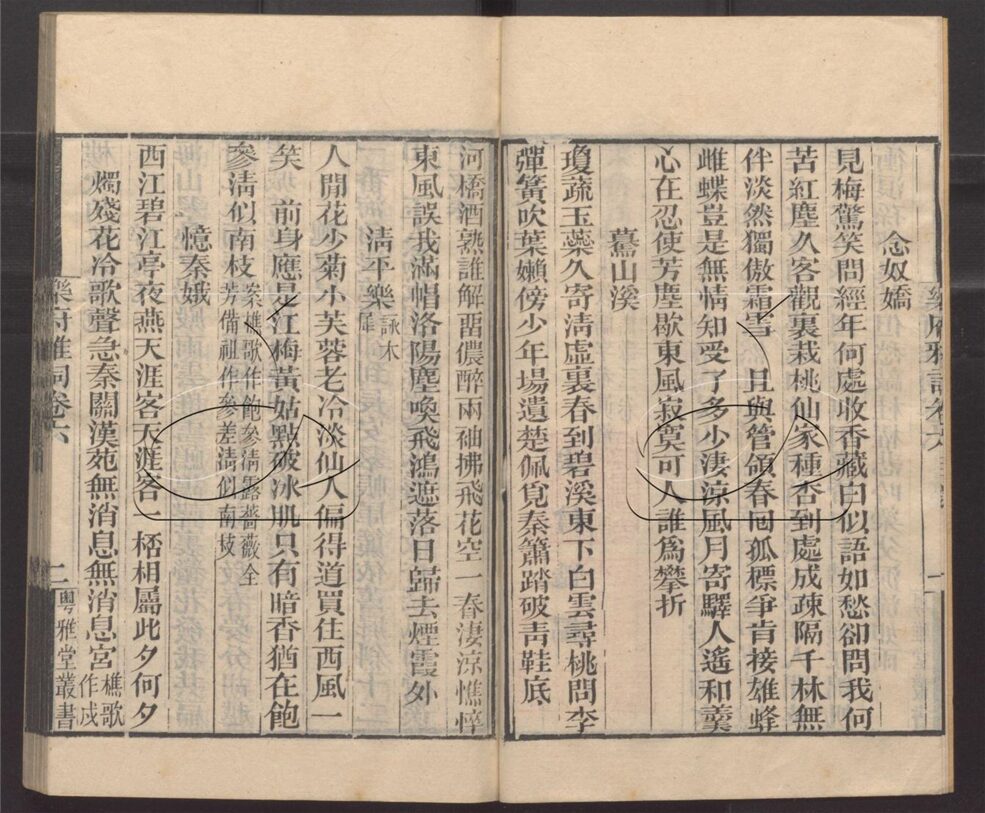 念奴嬌
見梅驚笑問經年何處收香藏白似語如愁卻問我何
苦紅塵久客觀裏栽桃仙家種杏到處成疎隔千林無
伴淡然獨傲霜雪　且與管領春囘孤標爭肯接雄蜂
雌蝶豈是無情知受了多少淒涼風月寄驛人遙和羹
心在忍使芳塵歇東風寂寞可人誰爲攀折
驀山溪
瓊蔬玉蘂久寄淸虛裏春到碧溪東下白雲尋桃問李
彈簧吹葉嬾傍少年場遺楚佩覓秦簫踏破靑鞋底
河橋酒熟誰解畱儂醉兩袖拂飛花空一春淒涼憔悴
東風誤我滿帽洛陽塵喚飛鴻遮落日歸去煙霞外
淸平樂詠木犀
人閒花少菊小芙蓉老冷淡仙人偏得道買住西風一
笑　前身應是江梅黃姑點破冰肌只有暗香猶在飽
參淸似南枝案樵歌作飽參淸露薔薇全芳備祖作參差淸似南枝
憶秦娥
西江碧江亭夜燕天涯客天涯客一桮相屬此夕何夕
燭殘花冷歌聲急秦關漢苑無消息無消息宮樵歌作戍
樂府雅詞卷六
二
粵雅堂叢書